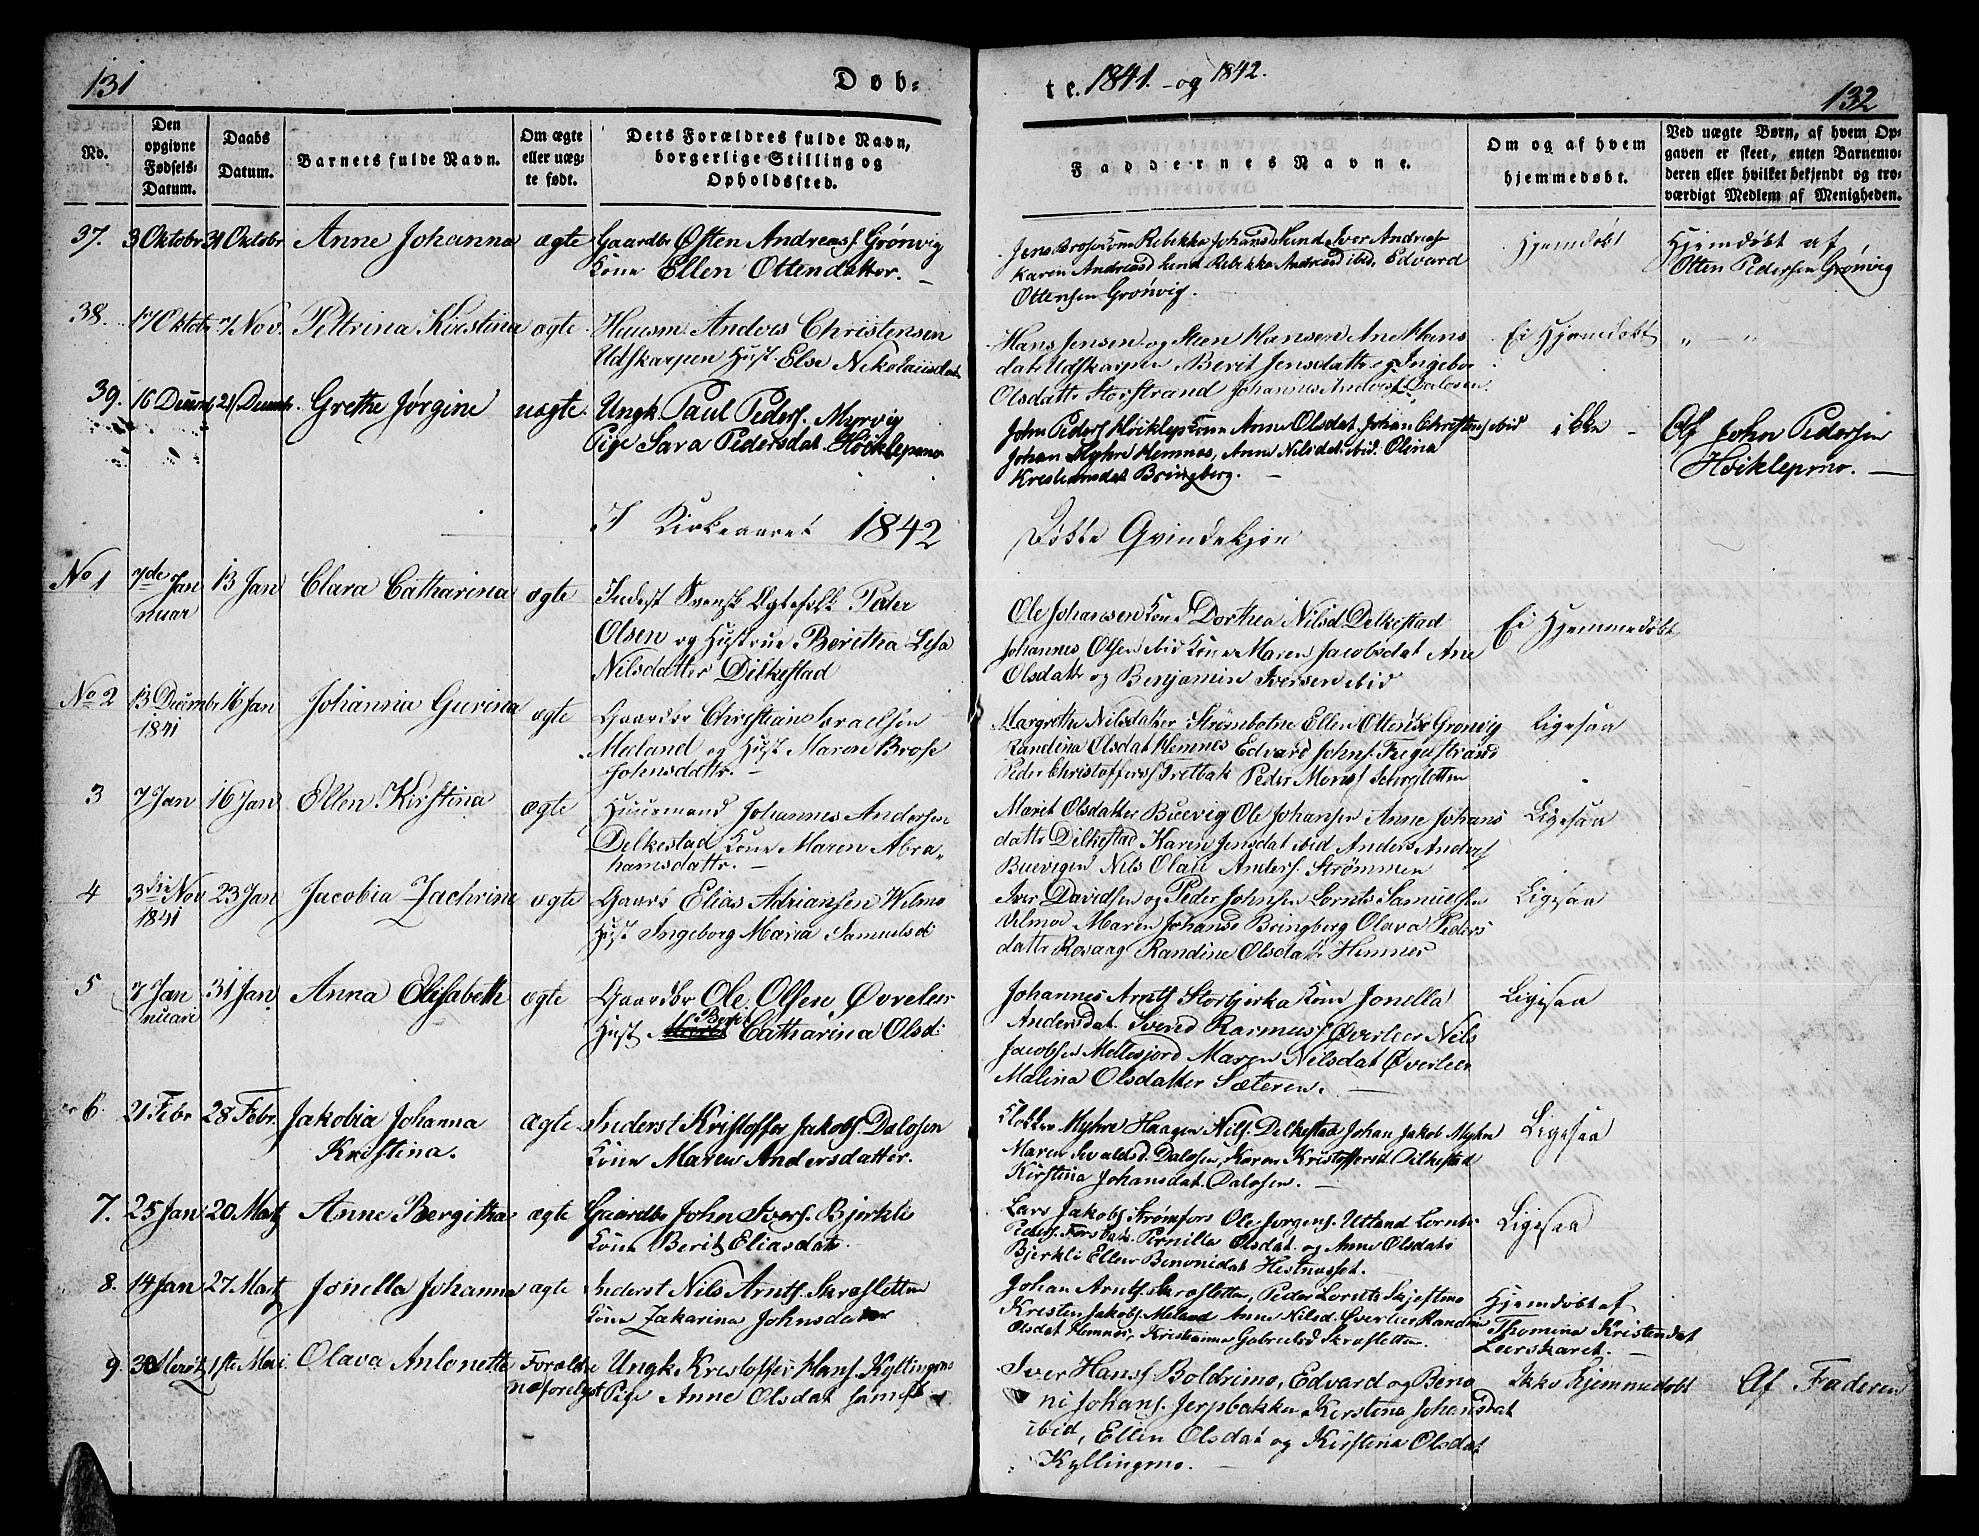 131
Døb=
te. 1841. og 1842.
132
No.
Den opgivne Fødsels-Datum.
Daabs Datum.
Barnets fulde Navn.
Om ægte eller uæg-te født.
Dets Forældres fulde Navn, borgerlige Stilling og Opholdssted.
Faddernes Navne.
Om og af hvem hjemmedøbt.
Ved uægte Børn, af hvem Op-gaven er skeet, enten Barnemo-deren eller hvilket bekjendt og tro-værdigt Medlem af Menigheden.
37. 3 Oktobr 31 Oktobr Anne Johanna ægte Gaardbr Østen Andreass. Grönvig
Kone Ellen Ottendatter.
Karen Andreasd Rebekka Andreasd ibid, Edvard
Ottensen Grønvig.
Hjemdøbt
Hjemdøbt af
Otten Pedersen Grønvig
38. 17 Oktobr 7 Nov. Petrina Kirstina ægte Huusm Anders Christensen
Udskarpen Hust. Else Nikolaiisdat
Hans Jensen og Steen Hansen Ane Hans
dat Udskarpen Berit Jensdattr og Ingebor
Olsdattr Storstrand Johannes Anders. Dalosen
Ei Hjemmedøbt
" - "
39. 16 Decemb 21 Decembr. Grethe Jørgine uægte Ungk. Paul Peders. Myrvig
Pige Sara Pedersdat. Höiklepmo
John Peders Höiklep Kone Anne Olsdat. Johan Christens ibid
Johan Myhre Hemnes, Anne Nilsdat ibid. Olina
Krestiansdat Bringberg.
ikke
Af John Pedersen
Höiklepmo.
I Kirkeaaret 1842
Døbte Qvindekjøn
No 1 7de Januar 13 Jan Clara Catharina ægte Inderst Svensk Egtefolk Peder
Olsen og Hustrue Beritha Lisa
Nilsdatter Dilkestad
Ole Johansen Kone Dorthea Nilsd Delkestad
Johannes Olsen ibid Kone Maren Jacobsdat Ane
Olsdattr og Benjamin Iversen ibid
Ei Hjemmedøbt
No 2 13 Decembr 1841 16 Jan Johanna Gurina ægte Gaardbr Christian Israelsen
Meland og Hust Maren Brose
Johnsdattr.
Margrethe Nilsdatter Strømbotne Ellen Ottensd Grønvig
Randina Olsdat Hemnes Edvard Johns.
Peder Christoffers Tretbak Peder
Ligesaa
3 7 Jan 16 Jan Ellen Kirstina ægte Huusmand Johannes Andersen
Delkestad Kone Maren Abra-
hamsdattr.
Maret Olsdatter Buevig Ole Johansen Anne Johans
dattr Dilkestad Karen Jensdat ibid Anders Anders
Buevigen Nils Olai Anders. Strømmen
Ligesaa
4 3die Nov 1841 23 Jan Jacobia Zachrine ægte Gaardb Elias Adriansen Velmo
Hust Ingeborg Maria Samuelsd
Iver Davidsen og Peder Johnsen Lornts Samuelsen
Velmoe Maren Johansd Bringberg Olava Peders
dattr Rosaag Randine Olsdatr Hemnes
Ligesaa
5 7 Januari 31 Jan Anna Elisabeth ægte Gaardbr Ole Olsen Øvreleer
Hust Catharina Olsd
Johannes Arnts Storbjerka Kone Jonella
Andersdat. Sverd Rasmus. Øverleer Nils
Jacobsen Maren Nilsdat Øverleer
Malina Olsdatter Sæteren.
Ligesaa
6. 21 Febr 28 Febr. Jakobia Johanna
Kristina. ægte Inderst Kristoffer Jakobs. Dalosen
Kone Maren Andersdatter.
Klokker Myhre Haagen Nils. Delkestad Johan Jakob Myhre
Maren Dalosen, Karen Kristoffersd Dilkestad
Kirstina Johansdat. Dalosen.
Ligesaa
7. 25 Jan 20 Martz Anne Bergitha ægte Gaardbr John Ivers. Bjerkli
Kone Berit Eliasdatr
Lars Jakobs Strømfors Ole Jørgens. Utland Lornts
Peders. Forsbak Pernilla Olsdat. og Anne Olsdatr
Bjerkli Ellen Benonidat Hestnesset.
Ligesaa
8. 14 Jan 27 Martz Jonella Johanna ægte Inderst Nils Arnts. Skrafletten
Kone Zakarina Johnsdatter
Johan Arnts. Skrafletten, Peder Lornts Skjeftmo
Kristen Jakobs Meland Anne Nilsd Øverleer Randine
Olsdat Hemnes, Kristianna Gabrielsd Skrafletten.
Hjemdøbt af
Thomina Kristendat
Leerskaret.
9. 30 Mertz 1ste Mai Olava Antonette Forældre
Ungk. Kristoffer Hans. Kyllingmo
Pige Anne Olsdat samest
Iver Hans. Boldrimo, Edvard og Beno
ni Johans. Jerpbakken Kerstina Johansdat
ibid, Ellen Olsdat og Kirstina Olsdat
Kyllingmo.
Ikke Hjemmedøbt
Af Faderen